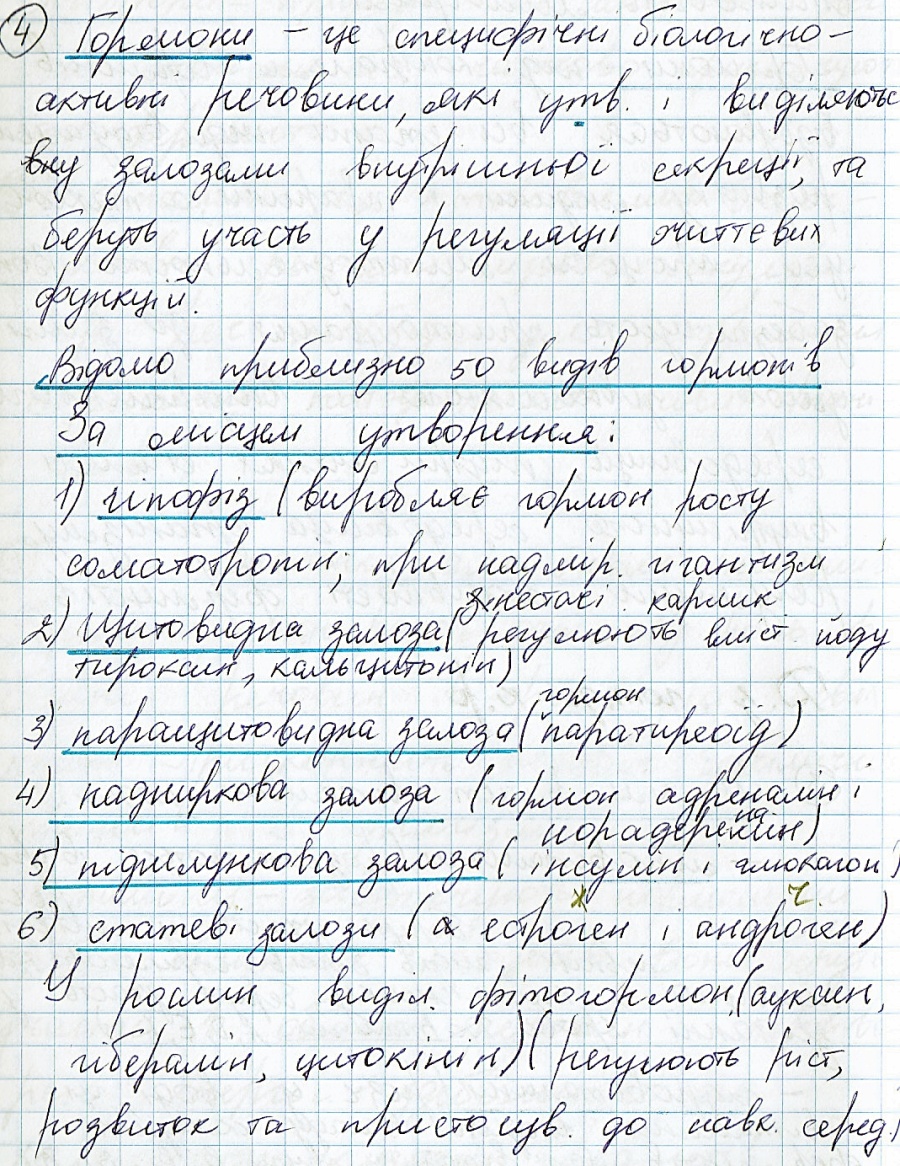 4 Гормони – це специфічні біологічно-
активні речовини, які утв. і виділяються
залозами внутрішньої секреції, та
беруть участь у регуляції життєвих
функцій.
Відомо приблизно 50 видів гормонів
За місцем утворення:
1) гіпофіз (виробляє гормон росту
соматотропін; при надмір. гігантизм
з нестачі карлик
2) Щитовидна залоза (регулюють вміст йоду
тироксин, кальцитонін)
гормон
3) паращитовидна залоза (паратиреоїд)
4) надниркова залоза (гормон адреналін і
5) підшлункова залоза (інсулін і глюкагон)
ж ч
6) статеві залози (естроген і андроген)
У рослин виділ. фітогормон (ауксин,
гіберелін, цитокінін) (регулюють ріст,
розвиток та пристосув. до навк. серед.)